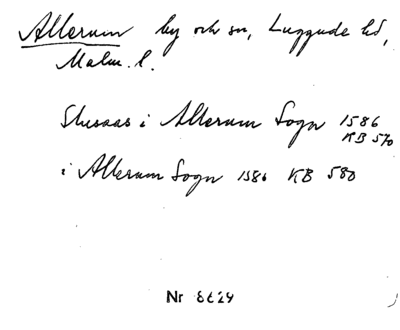 Allerum by och sn, Luggude hd,
Malm. l.
Stusaas i Allerum Sogn 1586
KB 570
i Allerum Sogn 1586 KB 580
Nr 8629